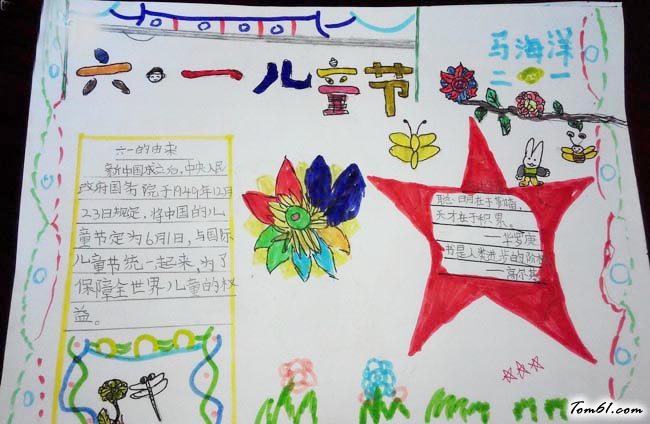 六·一儿童节
马海洋
二(一)
六一的由来
新中国成立后,中央人民
政府国务院于1949年12月
23日规定,将中国的儿
童节定为6月1日,与国际
儿童节统一起来,为了
保障全世界儿童的权
益。
聪明在于勤奋,
天才在于积累。
——华罗庚
书是人类进步的阶梯
——高尔基
Tom61.com